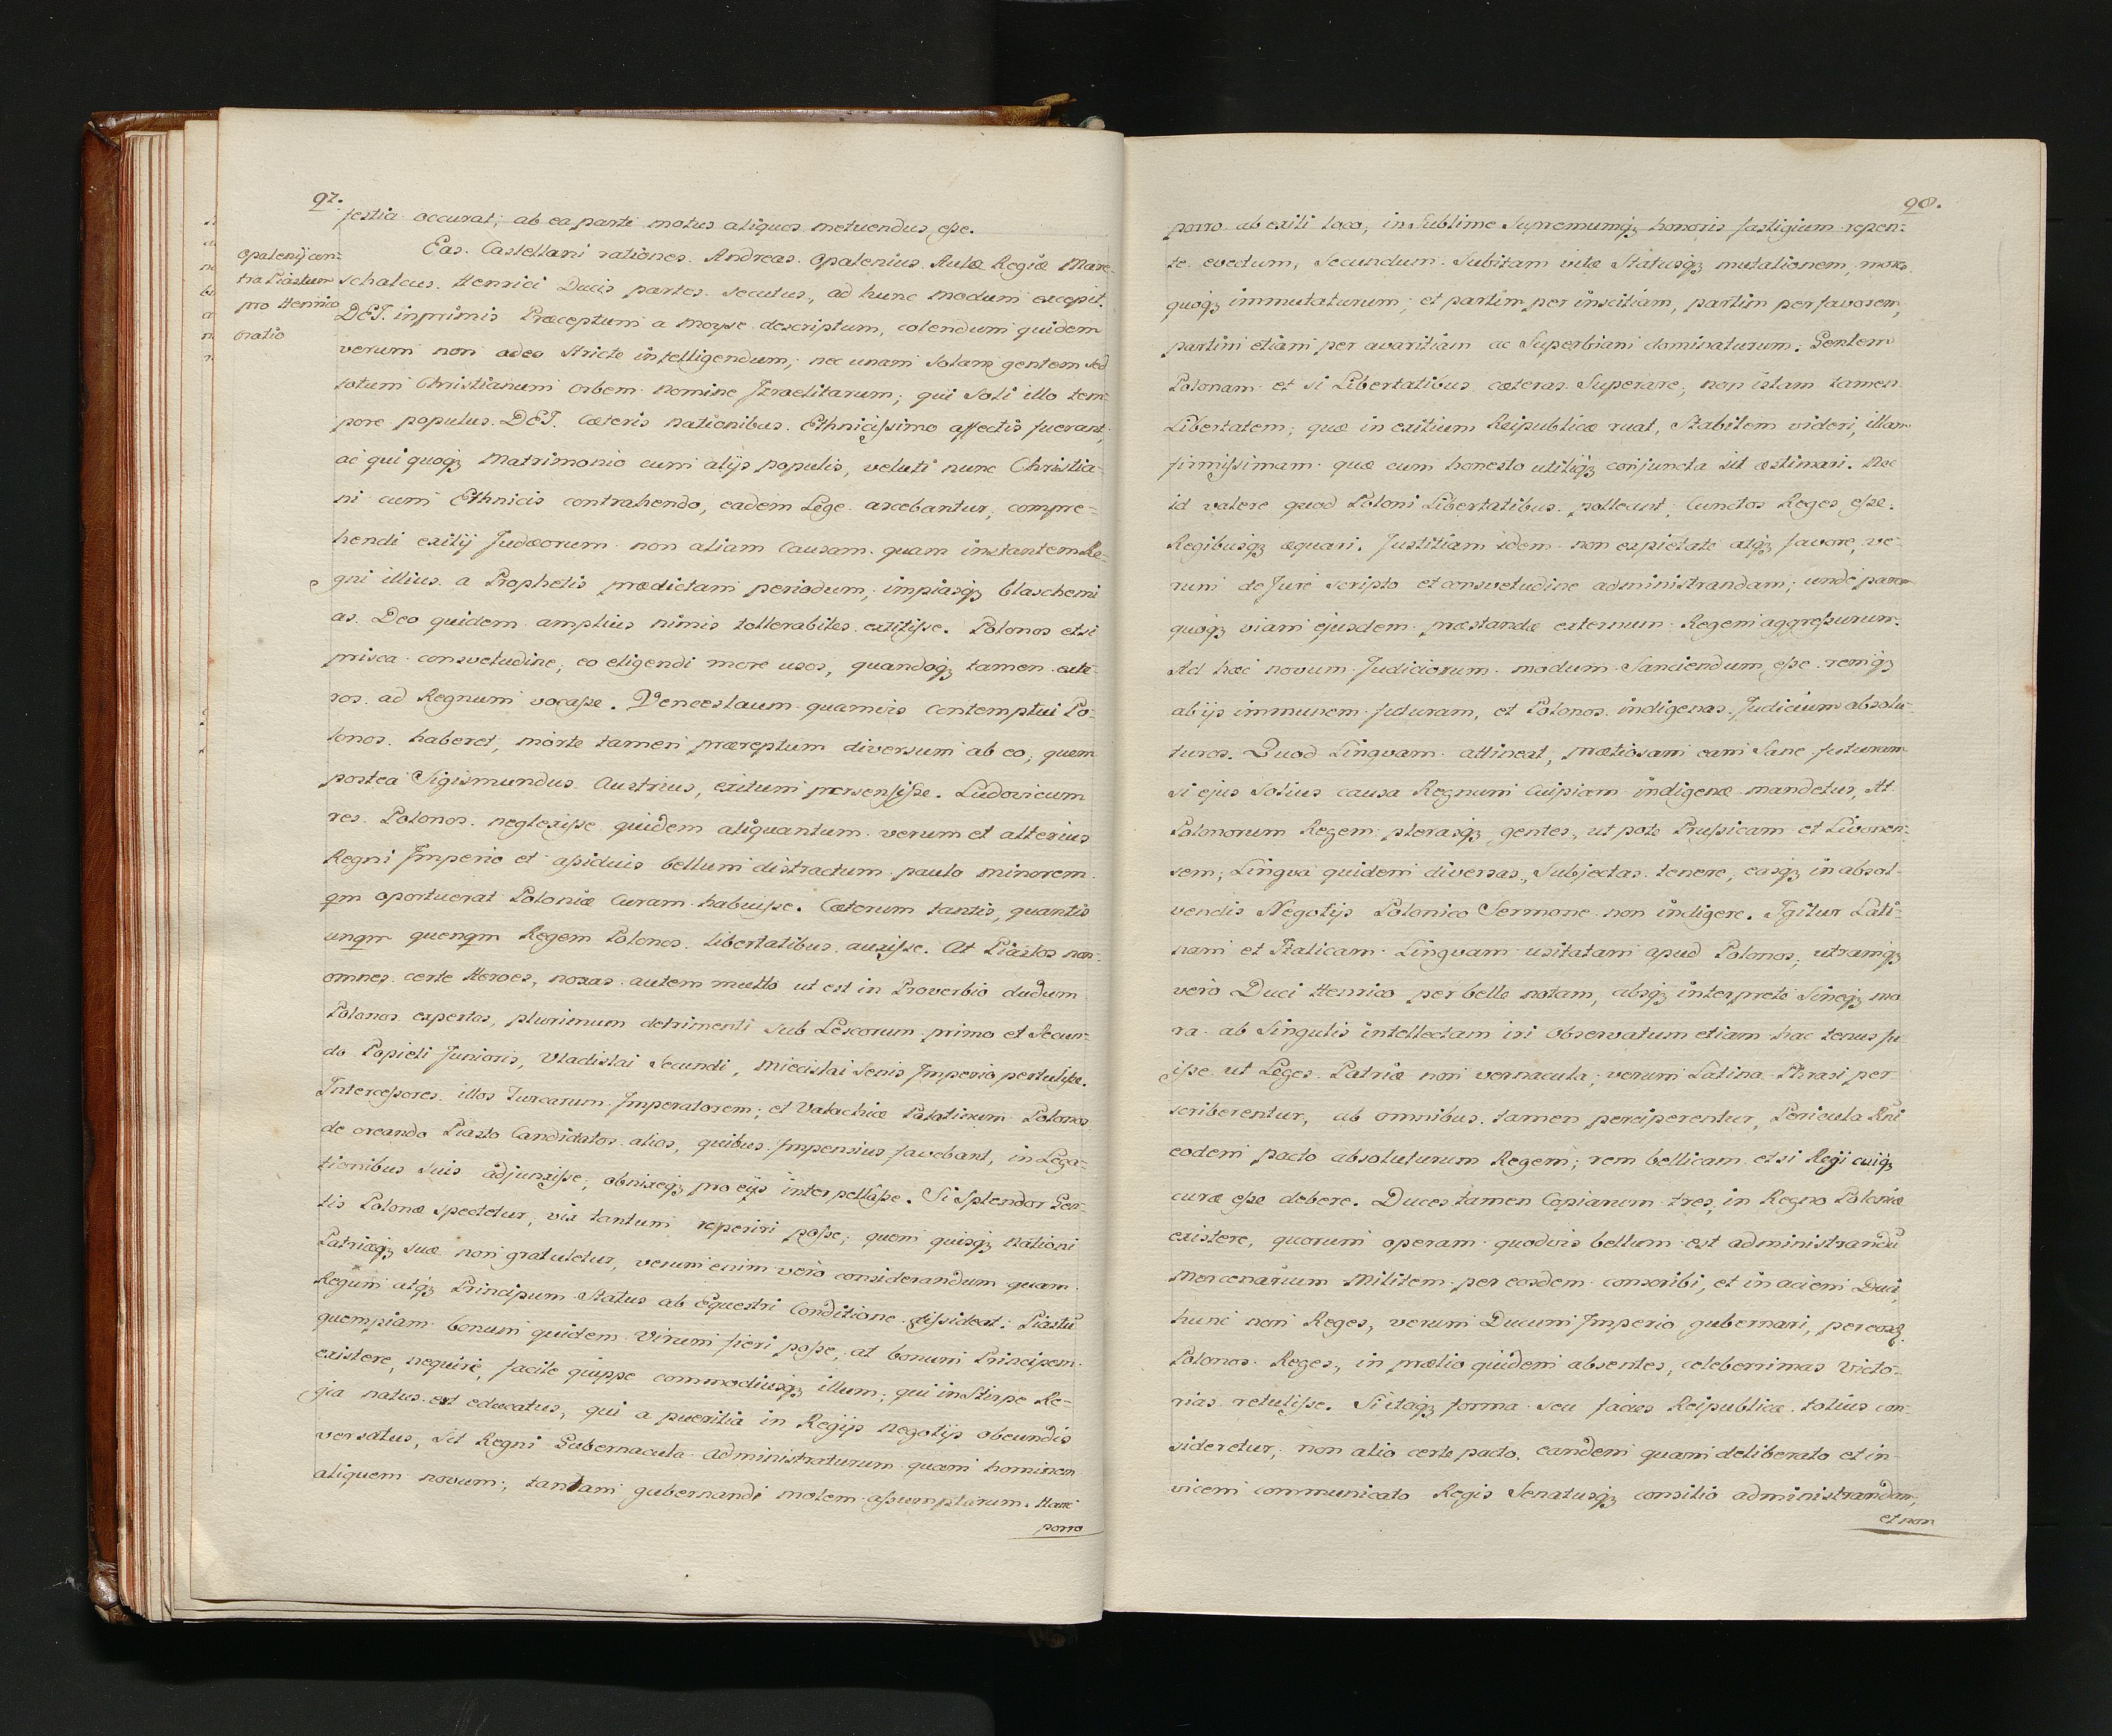 97.
festia occurat, ab ea parte motus aliquos metuendus esse.
Opalenij con-
tra Piastum
pro Henrico
oratio
Eas Castellani rationes Andreas Opalenius Aulæ Regiæ Mare-
schalcus Henrici Ducis partes secutus, ad hunc modum excepit.
DEI. inprimis Præceptum a Moyse descriptum, colendum quidem
verum non adeo stricte intelligendum; nec unam solam gentem sed
totum Christianum orbem nomine Izraelitarum; qui soli illo tem-
pore populus DEI. cæteris nationibus Ethnicissimo affectis fuerant,
ac qui quoqz Matrimonio cum alijs populis, veluti nunc Christia-
ni cum Ethnicis contrahendo, eadem Lege arcebantur, compre-
hendi exilij Judæorum non aliam causam quam instantem Re-
gni illius a Prophetis prædictam periodum, impiasqz blaschemi
as Deo quidem amplius nimis tollerabiles extitisse. Polonos etsi
prisca consvetudine, eo eligendi more usos, quandoqz tamen exte-
ros ad Regnum vocasse. Venceslaum quamvis contemptui Po-
lonos haberet, morte tamen præreptum diversum ab eo, quem
postea Sigismundus Austrius, exitum persensisse. Ludovicum
res Polonos neglexisse quidem aliquantum verum et alterius
Regni Imperio et assiduis bellum distractum paulo minorem
qm oportuerat Poloniæ Curam habuisse. Cæterum tantis, quantis
unqm quenqm Regem Polonos libertatibus auxisse. At Piastos non
omnes certe Heroes, noxas autem multo ut est in Proverbio dudum
Polonos expertos, plurimum detrimenti sub Lescorum primo et Secun-
do Popieli Junioris, Vladislai Secundi, Miecislai Senis Imperio pertulisse.
Intercessores illos Turcarum Imperatorem, et Valachiæ Palatinum Polonos
de creando Piasto Candidatos alios, quibus Impensius favebant, in Lega-
tionibus suis adjunxisse, obnixeqz pro eijs interpellasse. Si Splendor Gen-
tis Polonæ spectetur, vix tantum reperiri posse, quem quisqz Nationi
Patriæqz suæ non gratuletur, verum enim vero considerandum quam
Regum atqz Principum Status ab Equestri Conditione dissideat: Piastū
quempiam bonum quidem Virum fieri posse, at bonum Principem
existere, nequire, facile quippe commodiusqz illum, qui in Stirpe Re-
gia natus est educatus, qui a pueritia in Regijs negotijs obeundis
versatus, sit Regni Gubernacula administraturum quam hominem
aliquem novum, tantam gubernandi molem assumpturum. Hunc
porro
98.
porro ab exili loco, in Sublime Supremumqz honoris fastigium repen-
te evectum, secundum subitam vitæ Statusqz mutationem, mores
quoqz immutaturum; et partim per inscitiam, partim per favorem,
partim etiam per avaritiam ac Superbiam dominaturum. Gentem
Polonam et si Libertatibus cæteras Superare, non istam tamen
Libertatem, quæ in exitium Reipublicæ ruat, Stabilem videri, illam
firmissimam quæ cum honesto utiliqz conjuncta sit æstimari. Nec
id valere quod Poloni Libertatibus polleant, Cunctos Reges esse.
Regibusqz æquari. Justitiam idem non expietate atqz favore, ve-
rum de Jure scripto et consvetudine administrandam; unde parem
quoqz viam ejusdem præstandæ externum Regem aggressurum.
Ad hæc novum Judiciorum modum Sanciendum esse remqz
ab ijs immunem futuram, et Polonos indigenas Judicium absolu-
turos. Quod Lingvam attineat, prætiosam eam Sane futuram
si ejus solius causa Regnum Cuipiam indigenæ mandetur, At
Polonorum Regem plerasqz gentes, ut pote Prussicam et Livonen-
sem, Lingva quidem diversas, Subjectas tenere, easqz in absol-
vendis Negotijs Polonico Sermone non indigere. Igitur Lati-
nam et Italicam Lingvam usitatam apud Polonos, utramqz
vero Duci Henrico per belle notam, absqz interprete Sineqz mo
ra ab Singulis intellectam iri Observatum etiam hac tenus fu-
isse ut Leges Patriæ non vernacula, verum Latina Phrasi per-
scriberentur, ab omnibus tamen perciperentur, Pericula Rni
eodem pacto absoluturum Regem; rem bellicam etsi Regi cuiqz
curæ esse debere. Duces tamen Copiarum tres, in Regno Poloniæ
existere, quorum operam quodvis bellum est administrandū
Mercenarium Militem per eosdem conscribi, et in aciem Duci,
hunc non Reges, verum Ducum Imperio gubernari, per eosqz
Polonos Reges, in prælio quidem absentes, celeberrimas Victo-
rias retulisse. Si itaqz forma seu facies Reipublicæ totius con-
sideretur, non alio certe pacto, eandem quam deliberato et in-
vicem communicato Regis Senatusqz consilio administrandam,
et non